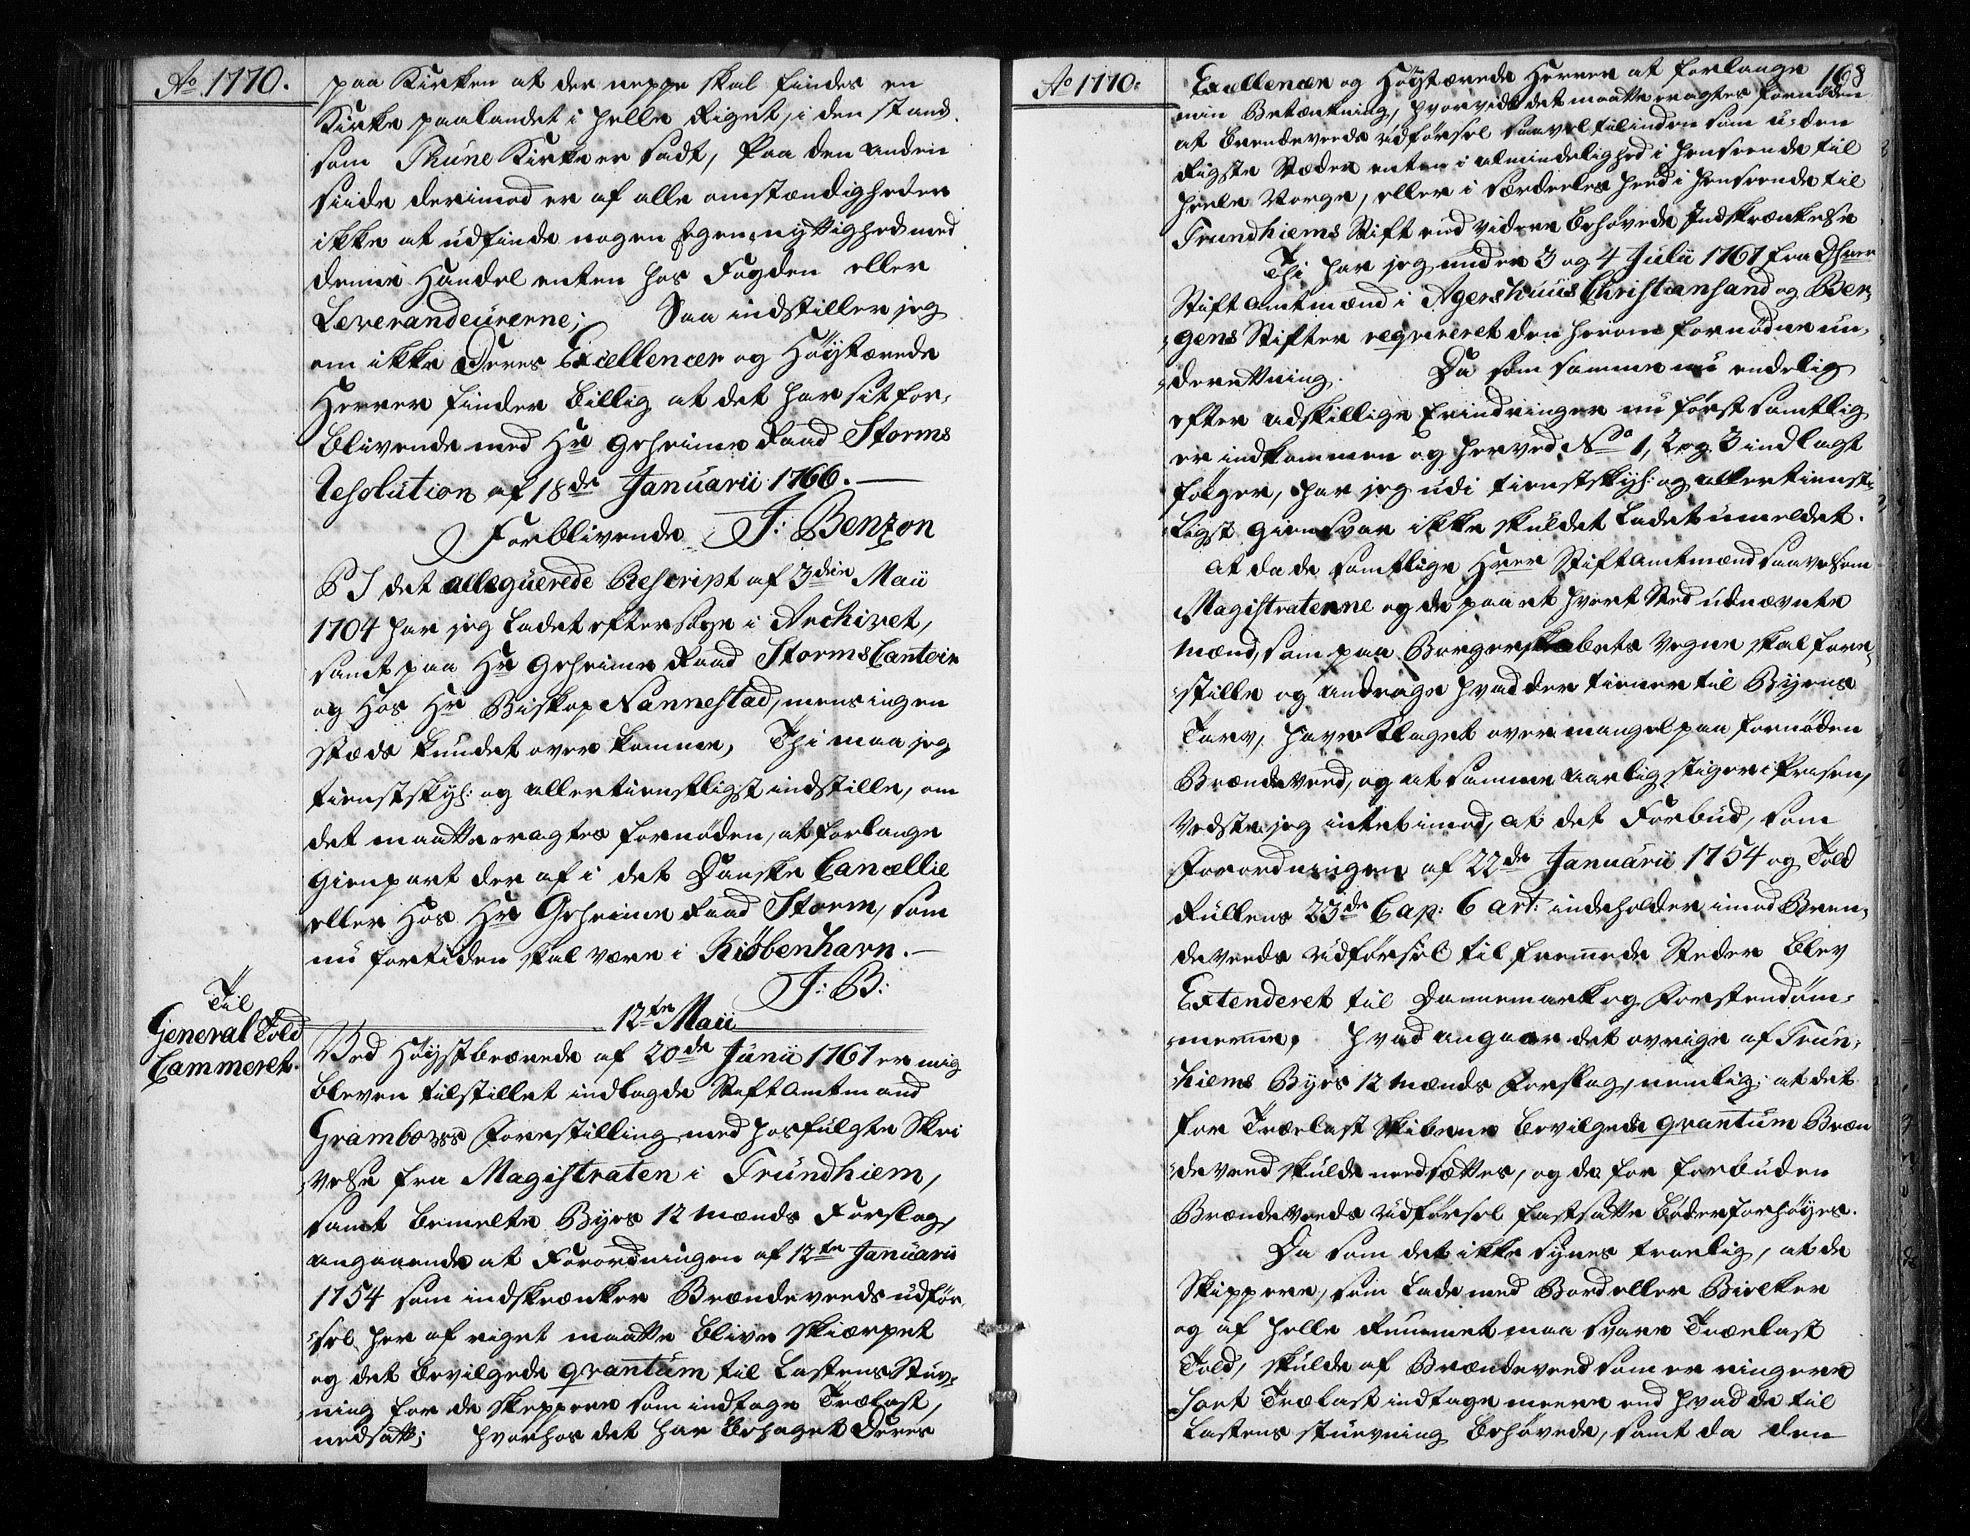 Ao 1770.
paa Kirken at der neppe skal findes en
Kirke paa landet i heele Riget, i den stand
som Thune Kirke er sadt, Paa den anden
siide derimod er af alle omstændigheder
ikke at udfinde nogen Egennyttighed med
denne Handel enten hos Fogden eller
Leverandeurerne; Saa indstiller jeg
om ikke Deres Excellencer og Høystærede
Herrer finder billig at det har sit for-
blivende med Hr Geheime Raad Storms
Resolution af 18de Januarii 1766.
Forblivende J: Benzon
PS I det alleguerede Rescript af 3die Maii
1704 har jeg ladet eftersøge i Archivet,
samt paa Hr Geheime Raad Storms Contoir
og Hos Hr Biskop Nannestad, mens ingen
stæds kundet overkomme, Thi maa jeg
tienstskyl: og allertienstligst indstille, om
det maatte eragtes fornøden, at forlange
Gienpart der af i det Danske Cancellie
eller Hos Hr Geheime Raad Storm, som
nu for tiden skal være i Kiøbenhavn.
J: B:
12te Maii
Til
General Told
Cammeret.
Ved Høystbeærede af 20de Junii 1767 er mig
bleven tilstillet indlagde Stiftamtmand
Grambows Forestilling med hosfulgte Skri
velse fra Magistraten i Trundhiem,
samt bemelte Byes 12 Mænds Forslag,
angaaende at Forordningen af 12te Januarii
1754 som indskrænker Brændeveeds udfør
sel her af riget maatte blive skiærpet
og det bevilgede qvantum til Lastens Stuv-
ning for de skippere som indtage Trælast,
nedsatt; hvorhos det har behaget Deres
Ao 1770.
168
Excellencer og Høystærede Herrer at forlange
min Betænkning, hvorvidt det maatte eragtes fornøden
at brendeveeds udførsel saavel til inden som uden
Rigste Stæder enten i almindelighed i henseende til
heele Norge, eller i særdeeleshed i henseende til
Trundhiems Stift end videre behøvede Indskrænkelse
Thi har jeg under 3 og 4 Julii 1767 fra Dhrrer
Stiftamtmænd i Agershuus Christiansand og Ber-
gens Stifter reqvireret den herom fornødne un-
derretning. Da som samme nu endelig
efter adskillige Erindringer nu først samtlig
er indkommen og herved No 1, 2 og 3 indlagt
følger, har jeg udi tienstskyl: og allertienst-
ligst giensvar ikke skuldet ladet umeldet.
At da de samtlige Hrrer Stiftamtmænd saavelsom
Magistraterne og de paa et hvert Sted udnævnte
Mænd, som paa Borgerskabets Vegne skal fore-
stille og andrage hvad der tiener til Byens
Tarv, have klaget over mangel paa fornøden
Brændeveed, og at samme aarlig stiger i Prisen,
Vedste jeg intet imod, at det Forbud, som
Forordningen af 22de Januarii 1754 og Told
Rullens 23de Cap: 6 art: indeholder imod Bren-
deveeds udførsel til fremmede Steder blev
Extenderet til Dannemark og Førstendøm-
merne, hvad angaar det øvrige af Trun-
hiems Byes 12 Mænds Forslag, nemlig; at det
for Trælast Skibene bevilgede qvantum Bræn
deveed skulde needsættes, og de for forbuden
Brændeveeds udførsel fastsatte bøder forhøyes.
Da som det ikke synes troelig, at de
Skippere, som lade med Bord eller Bielker
og af heele Rummet maa svare Trælast
Told, skulde af Brændeveed som er ringere
sort Trælast indtage meere end hvad de til
Lastens stuevning behøvede, samt da den